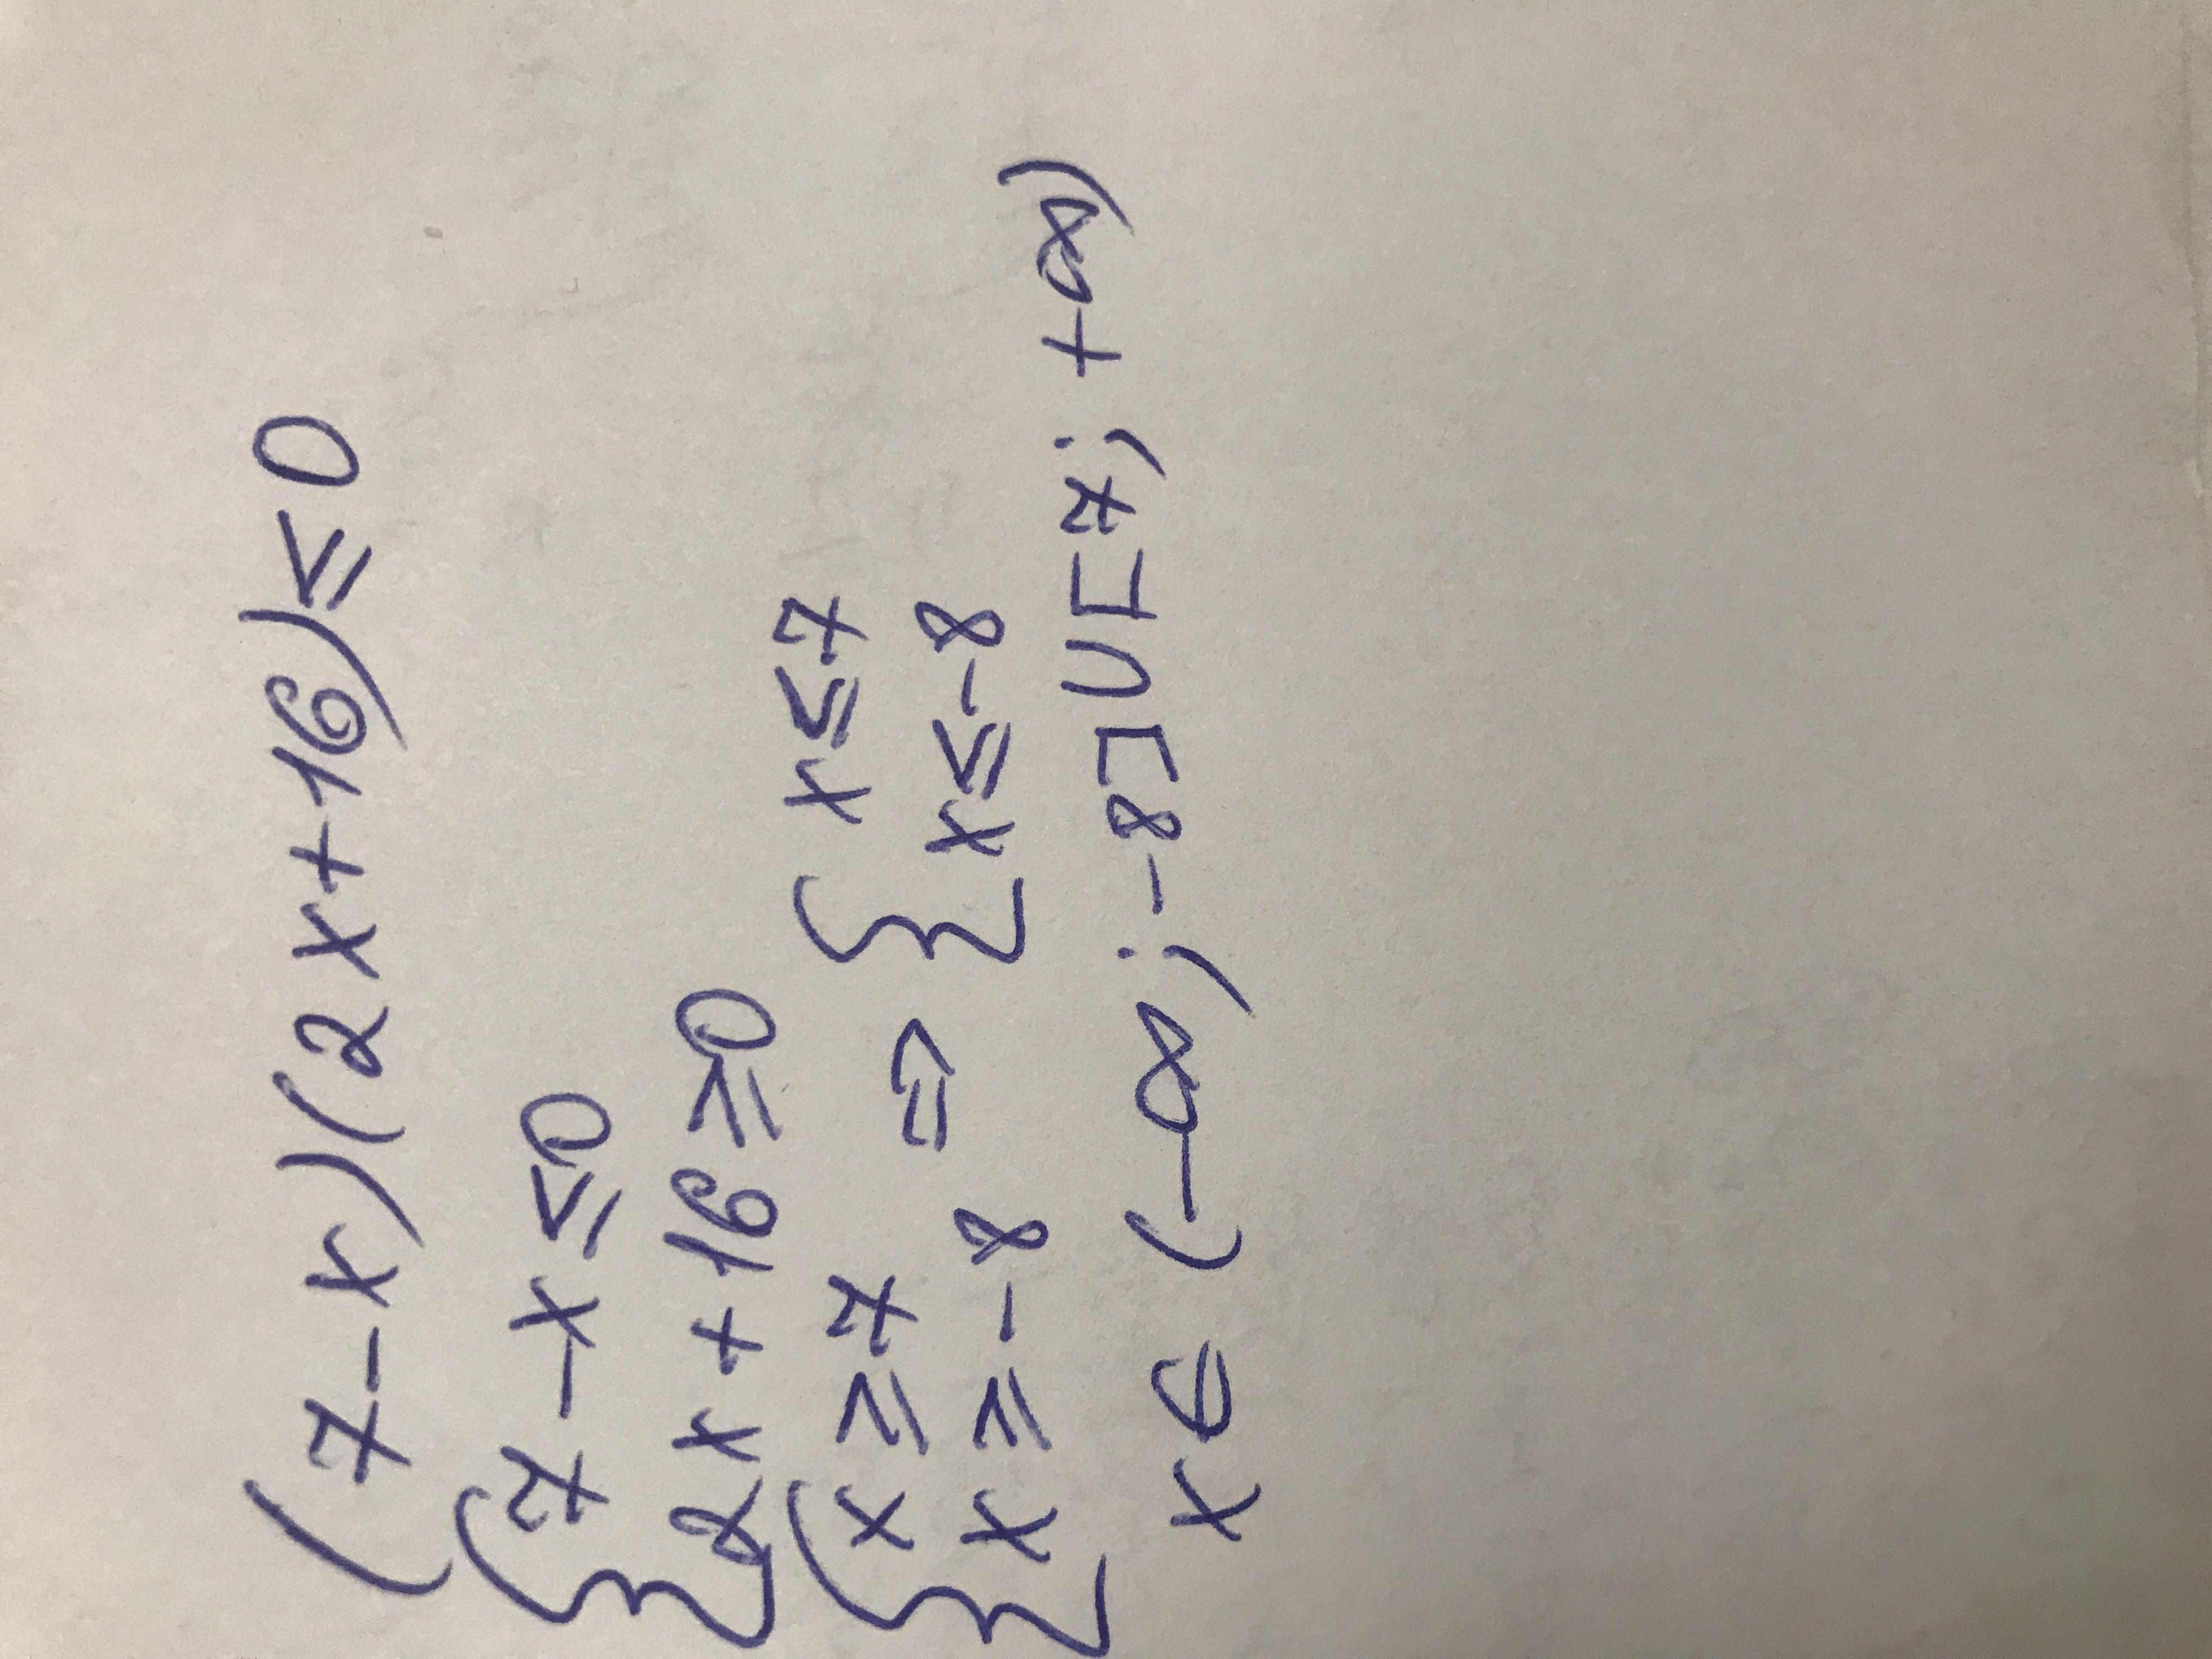 (7-x)(2x+16)≤0
{7-x≤0
2x+16≥0
{x≥7 ⇒ {x≤7
x≥-8 x≤-8
x∈(-∞;-8]∪[7;+∞)